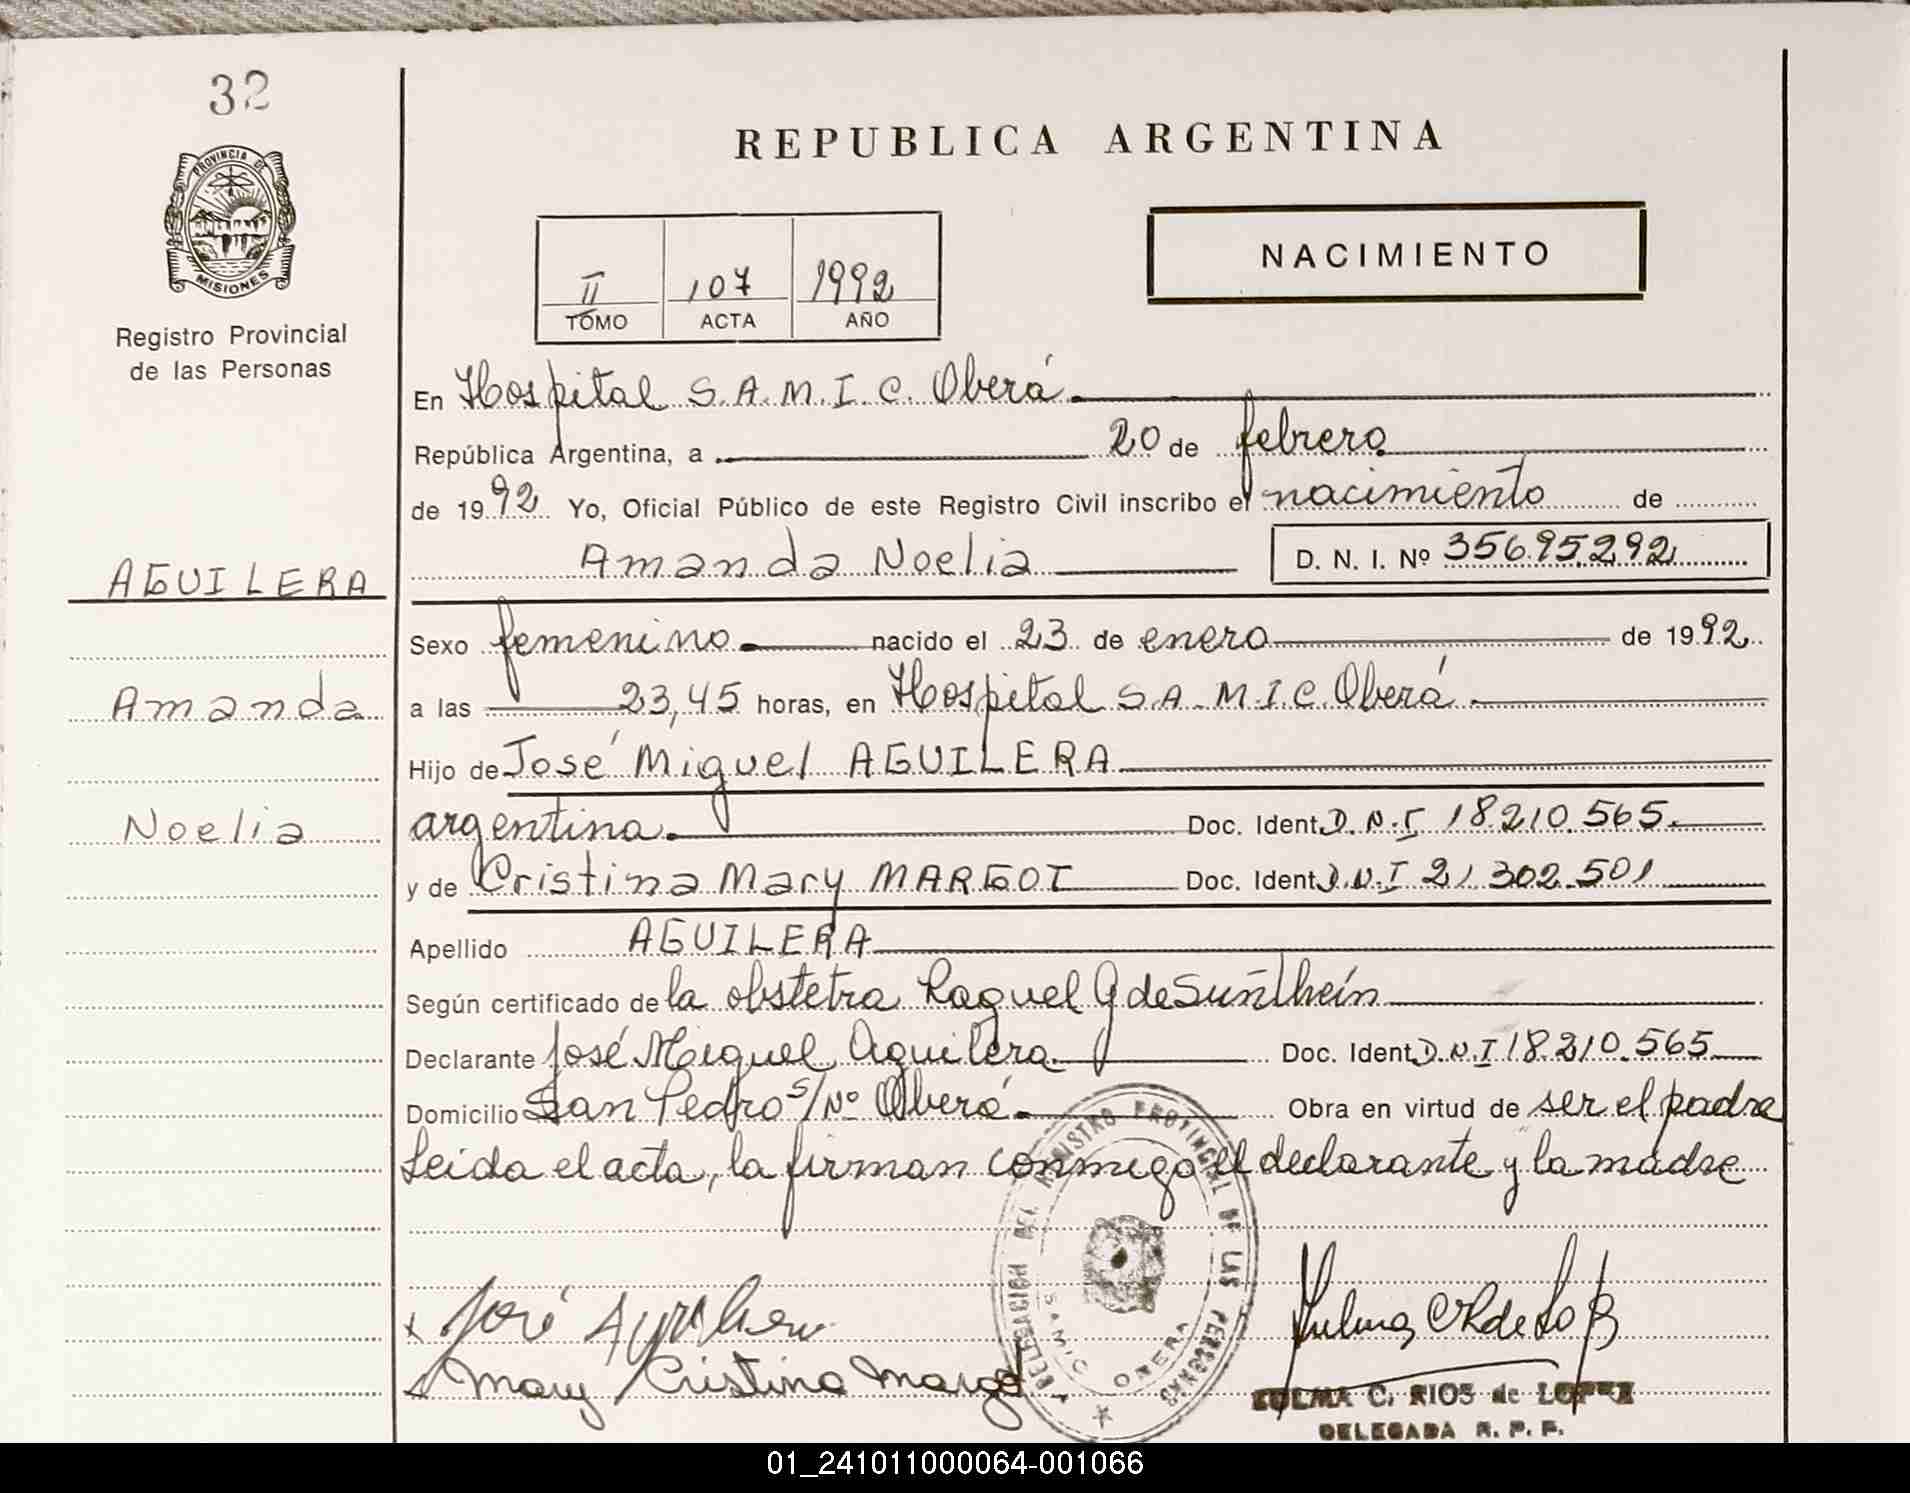 32
PROVINCIA DE
MISIONES
Registro Provincial
de las Personas
REPUBLICA ARGENTINA
II 107 1992
TOMO ACTA AÑO
NACIMIENTO
En Hospital S.A.M.I.C. Oberá
República Argentina, a 20 de febrero
de 1992 Yo, Oficial Público de este Registro Civil inscribo el nacimiento de
Amanda Noelia D. N. I. Nº 35695292
AGUILERA
Amanda
Noelia
Sexo femenino nacido el 23 de enero de 1992
a las 23,45 horas, en Hospital S.A.M.I.C. Oberá
Hijo de José Miguel AGUILERA
argentina Doc. Ident. D.N.I 18.210.565
y de Cristina Mary MARGOT Doc. Ident. D.N.I 21.302.501
Apellido AGUILERA
Según certificado de la obstetra Raquel G de
Declarante José Miguel Aguilera Doc. Ident. D.N.I 18.210.565
Domicilio San Pedro s/Nº Oberá Obra en virtud de ser el padre
Leida el acta, la firman conmigo el declarante y la madre
DELEGACION DEL REGISTRO PROVINCIAL DE LAS PERSONAS
SAMIC OBERA
x José
x Mary Cristina Margot
ZULMA C. RIOS de LOPEZ
DELEGADA R. P. P.
01_241011000064-001066